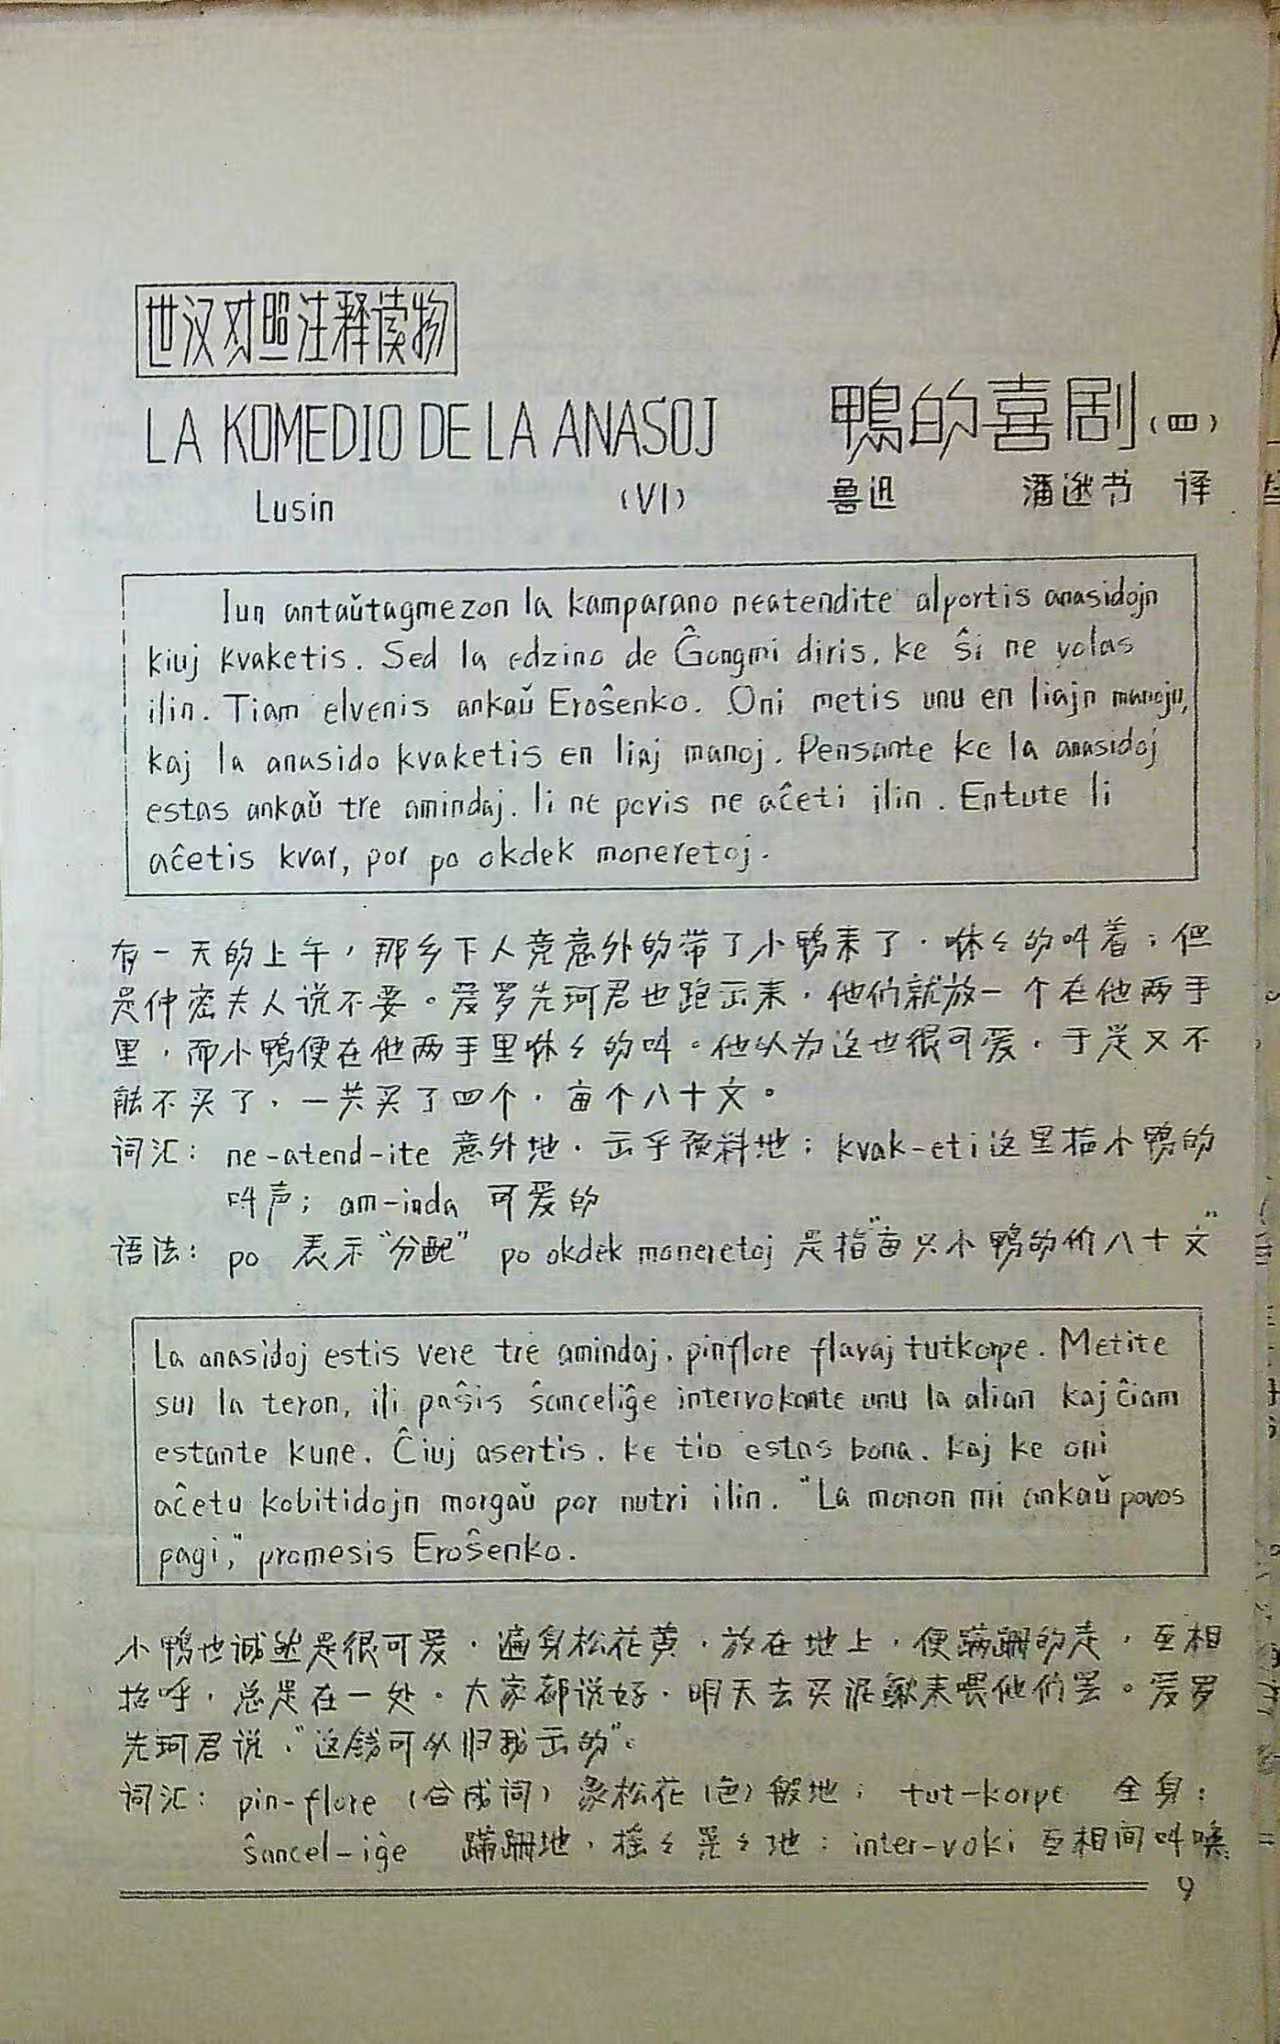 世汉对照注释读物
LA KOMEDIO DE LA ANASOJ
鴨的喜剧(四)
Lusin (VI)
鲁迅 潘逊书 译
Iun antaŭtagmezon la kamparano neatendite alportis anasidojn
kiuj kvaketis. Sed la edzino de Ĝongmi diris, ke ŝi ne volas
ilin. Tiam elvenis ankaŭ Eroŝenko. Oni metis unu en liajn manojn,
kaj la anasido kvaketis en liaj manoj. Pensante ke la anasidoj
estas ankaŭ tre amindaj, li ne povis ne aĉeti ilin. Entute li
aĉetis kvar, por po okdek moneretoj.
有一天的上午，那乡下人竟意外的带了小鸭来了，咻々的叫着；但
是仲密夫人说不要。爱罗先珂君也跑出来，他们就放一个在他两手
里，而小鸭便在他两手里咻々的叫。他以为这也很可爱，于是又不
能不买了，一共买了四个，每个八十文。
词汇：ne-atend-ite 意外地，出乎预料地；kvak-eti 这里指小鸭的
叫声；am-inda 可爱的
语法：po 表示“分配” po okdek moneretoj 是指“每只小鸭的价八十文”
La anasidoj estis vere tre amindaj, pinflore flavaj tutkorpe. Metite
sur la teron, ili paŝis ŝanceliĝe intervokante unu la alian kaj ĉiam
estante kune. Ĉiuj asertis, ke tio estas bona, kaj ke oni
aĉetu kobitidojn morgaŭ por nutri ilin. "La monon mi ankaŭ povos
pagi," promesis Eroŝenko.
小鸭也诚然是很可爱，遍身松花黄，放在地上，便蹒跚的走，互相
招呼，总是在一处。大家都说好，明天去买泥鳅来喂他们罢。爱罗
先珂君说，“这钱可以归我出的”。
词汇：pin-flore (合成词) 象松花(色)般地；tut-korpe 全身；
ŝancel-iĝe 蹒跚地，摇々晃々地；inter-voki 互相间叫唤
9